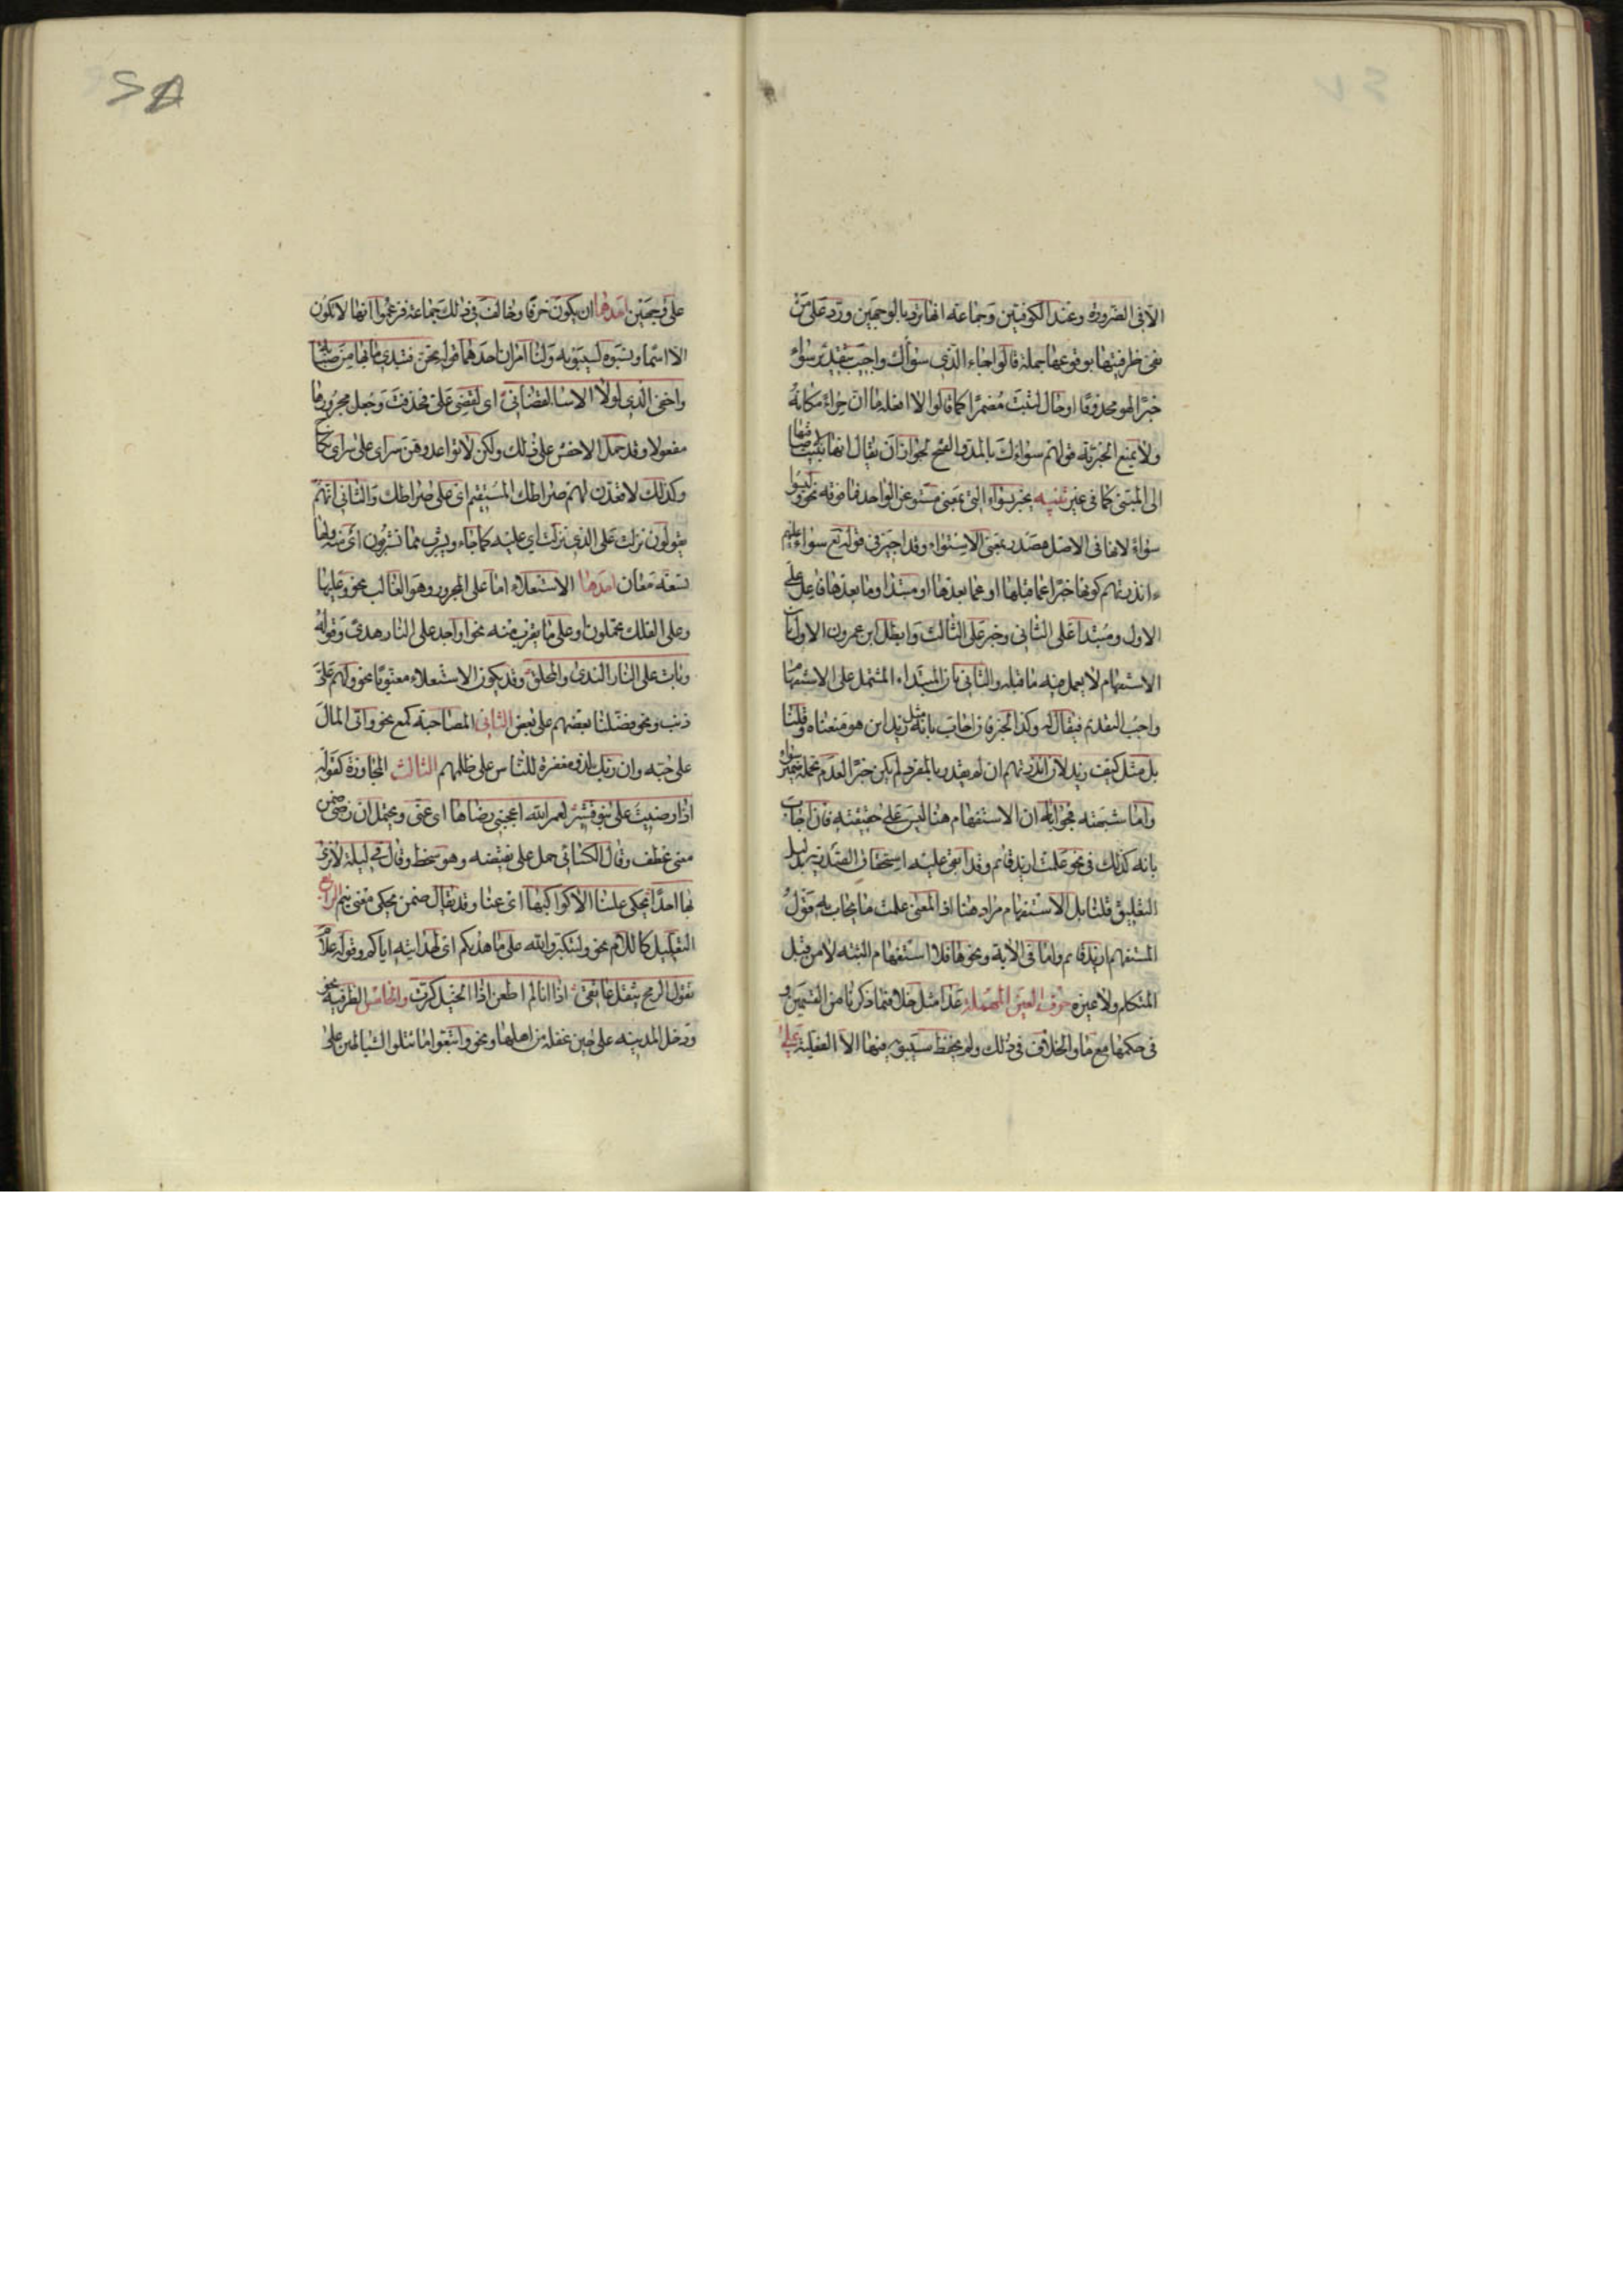 الا فى الضرورة وعند الكوفيين وجماعة انها ترد بالوجهين ورد على من
نفى ظرفيتها بوقوعها صلة قالوا جاء الذى سواك واجيب بتقدير سواء
خبرا لهو محذوفا او حال لثبت مضمرا كما قالوا لا افعله ما ان حراء مكانه
ولا يمنع الخبرية قولهم سواءك بالمد والفتح لجواز ان يقال انها بنيت لاضافتها
الى المبنى كما فى غير تنبيه يخبر بسواء التى بمعنى مستو عن الواحد فما فوقه نحو ليسوا
سواء لانها فى الاصل مصدر بمعنى الاستواء وقد اجيز فى قوله تع سواء عليهم
ءانذرتهم كونها خبرا عما قبلها او عما بعدها او مبتدا وما بعدها فاعل على
الاول ومبتدا على الثانى وخبر على الثالث وابطل ابن عمرون الاول بان
الاستفهام لا يعمل فيه ما قبله والثانى بان المبتداء المشتمل على الاستفهام
واجب التقديم فيقال له وكذا الخبر فان اجاب بانه مثل زيد اين هو منعناه وقلنا
بل مثل كيف زيد لان انذرتهم ان لم يقدر بالمفرد لم يكن خبرا لعدم تحمله ضمير سواء
واما شبهته فجوابها ان الاستفهام هنا ليس على حقيقته فان اجاب
بانه كذلك فى نحو علمت ازيد قائم وقد ابقى عليه استحقاق الصدرية بدليل
التعليق قلنا بل الاستفهام مراد هنا اذ المعنى علمت ما يجاب به قول
المستفهم ازيد قائم واما فى الاية ونحوها فلا استفهام البتة لا من قبل
المتكلم ولا غيره حرف العين المهملة عدا مثل خلا فيما ذكرنا من القسمين و
فى حكمها مع ما والخلاف فى ذلك ولم يحفظ سيبويه فيها الا الفعلية على
على وجهين احدها ان يكون حرفا وخالف فى ذلك جماعة فزعموا انها لا تكون
الا اسما ونسبوه لسيبويه ولنا امران احدهما قوله تحن فتبدى ما بها من صبابة
واخفى الذى لولا الاسا لقضانى اى لقضى على فحذفت وجعل مجرورها
مفعولا وقد حمل الاخفش على ذلك ولكن لا تواعدوهن سرا اى على سر اى نكاح
وكذلك لاقعدن لهم صراطك المستقيم اى على صراطك والثانى انهم
يقولون نزلت على الذى نزلت اى عليه كما جاء ويشرب مما تشربون اى منه ولها
تسعة معان احدها الاستعلاء اما على المجرور وهو الغالب نحو وعليها
وعلى الفلك تحملون او على ما يقرب منه نحو او اجد على النار هدى وقوله
وبات على النار الندى والمحلق وقد يكون الاستعلاء معنويا نحو ولهم على
ذنب ونحو فضلنا بعضهم على بعض الثانى المصاحبة كمع نحو واتى المال
على حبه وان ربك لذو مغفرة للناس على ظلمهم الثالث المجاوزة كقوله
اذا رضيت على بنو قشير لعمر الله اعجبنى رضاها اى عنى ويحتمل ان رضى ضمن
معنى عطف وقال الكسائى حمل على نقيضه وهو سخط وقال فى ليلة لا نرى
بها احدا يحكى علينا الا كواكبها اى عنا وقد يقال ضمن يحكى معنى ينم الرابع
التعليل كاللام نحو ولتكبروا الله على ما هديكم اى لهدايته اياكم وقوله علام
تقول الرمح يثقل عاتقى اذا انا لم اطعن اذا الخيل كرت والخامس الظرفية نحو
ودخل المدينة على حين غفلة من اهلها ونحو واتبعوا ما تتلوا الشياطين على